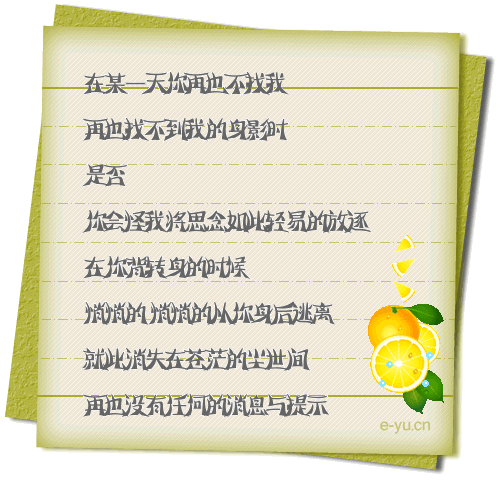 在某一天你再也不找我
再也找不到我的身影时
是否
你会怪我将思念如此轻易的放逐
在你微转身的时候
悄悄的 悄悄的从你身后逃离
就此消失在苍茫的尘世间
再也没有任何的消息与提示
e-yu.cn